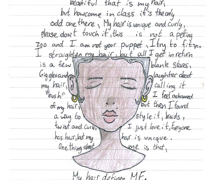 beautiful that is my hair,
but howcome in class it's the only
odd one there, My hair is unique and curly,
Please don't touch it, this is not a petting
Zoo and I am not your puppet, I try to fit in
I straighten my hair, but all I get in return
is a few blank stares,
Giggles and laughter about
my hair, calling it
"bush"
of my hair but then I found
a way to style it, braids,
twist and curls I just love it, Everyone
has hair, but my hair is unique
One thing about me is that,
My hair defines ME.